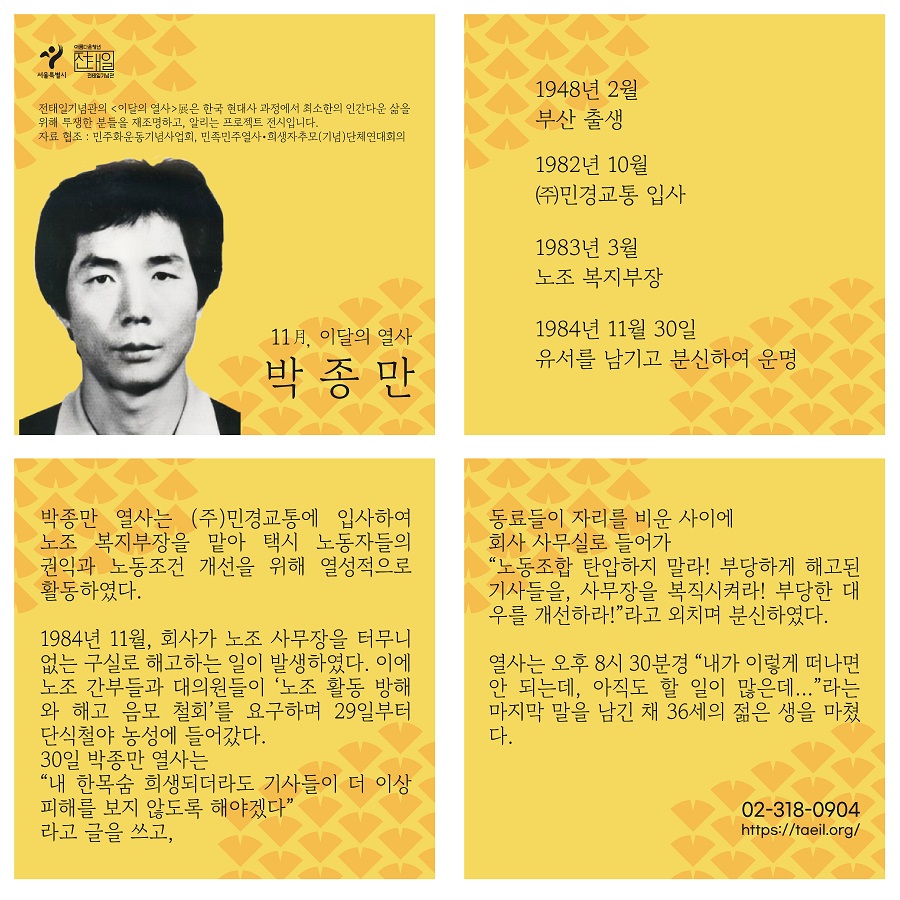 서울특별시
아름다운청년
전태일
전태일기념관
전태일기념관의 <이달의 열사>展은 한국 현대사 과정에서 최소한의 인간다운 삶을
위해 투쟁한 분들을 재조명하고, 알리는 프로젝트 전시입니다.
자료 협조 : 민주화운동기념사업회, 민족민주열사•희생자추모(기념)단체연대회의
11月, 이달의 열사
박종만
1948년 2월
부산 출생
1982년 10월
㈜민경교통 입사
1983년 3월
노조 복지부장
1984년 11월 30일
유서를 남기고 분신하여 운명
박종만 열사는 (주)민경교통에 입사하여
노조 복지부장을 맡아 택시 노동자들의
권익과 노동조건 개선을 위해 열성적으로
활동하였다.
1984년 11월, 회사가 노조 사무장을 터무니
없는 구실로 해고하는 일이 발생하였다. 이에
노조 간부들과 대의원들이 ‘노조 활동 방해
와 해고 음모 철회’를 요구하며 29일부터
단식철야 농성에 들어갔다.
30일 박종만 열사는
“내 한목숨 희생되더라도 기사들이 더 이상
피해를 보지 않도록 해야겠다”
라고 글을 쓰고,
동료들이 자리를 비운 사이에
회사 사무실로 들어가
“노동조합 탄압하지 말라! 부당하게 해고된
기사들을, 사무장을 복직시켜라! 부당한 대
우를 개선하라!”라고 외치며 분신하였다.
열사는 오후 8시 30분경 “내가 이렇게 떠나면
안 되는데, 아직도 할 일이 많은데...”라는
마지막 말을 남긴 채 36세의 젊은 생을 마쳤
다.
02-318-0904
https://taeil.org/